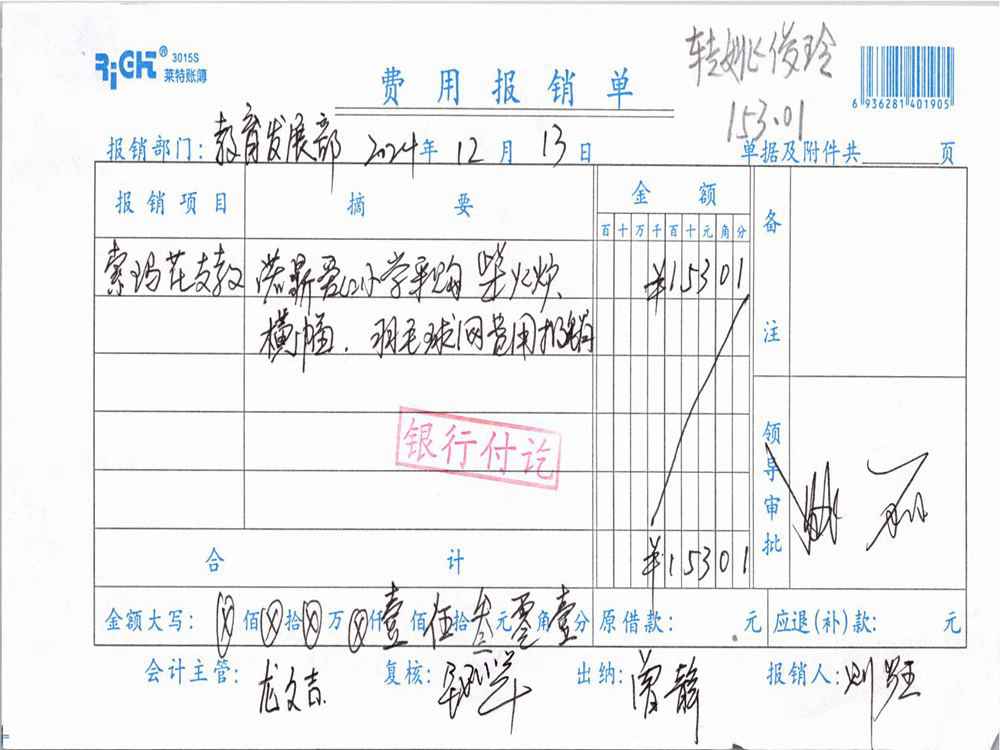 RiGHT® 3015S
莱特账簿
转姚俊玲
153.01
6 936281 401905
费用报销单
报销部门：教育发展部 2024年 12月 13日 单据及附件共 页
报销项目 摘要 金额 备注
百十万千百十元角分
索玛花支教 爱心小学采购柴火炉、 ¥15301
横幅、羽毛球网费用报销
银行付讫
领导审批
合计 ¥15301
金额大写：ⓧ佰ⓧ拾ⓧ万ⓧ仟壹佰伍拾叁元零角壹分 原借款： 元 应退(补)款： 元
会计主管：龙文吉 复核： 出纳：曾静 报销人：